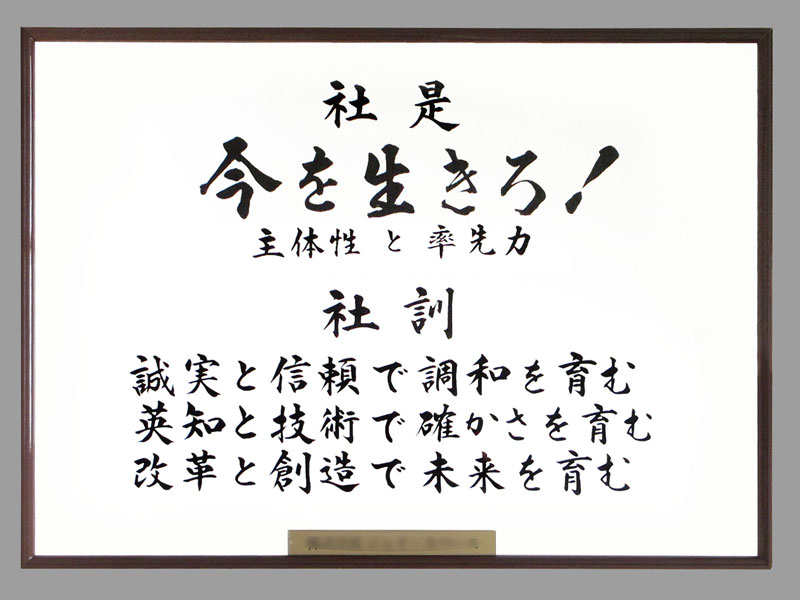 社是
今を生きろ!
主体性と率先力
社訓
誠実と信頼で調和を育む
英知と技術で確かさを育む
改革と創造で未来を育む